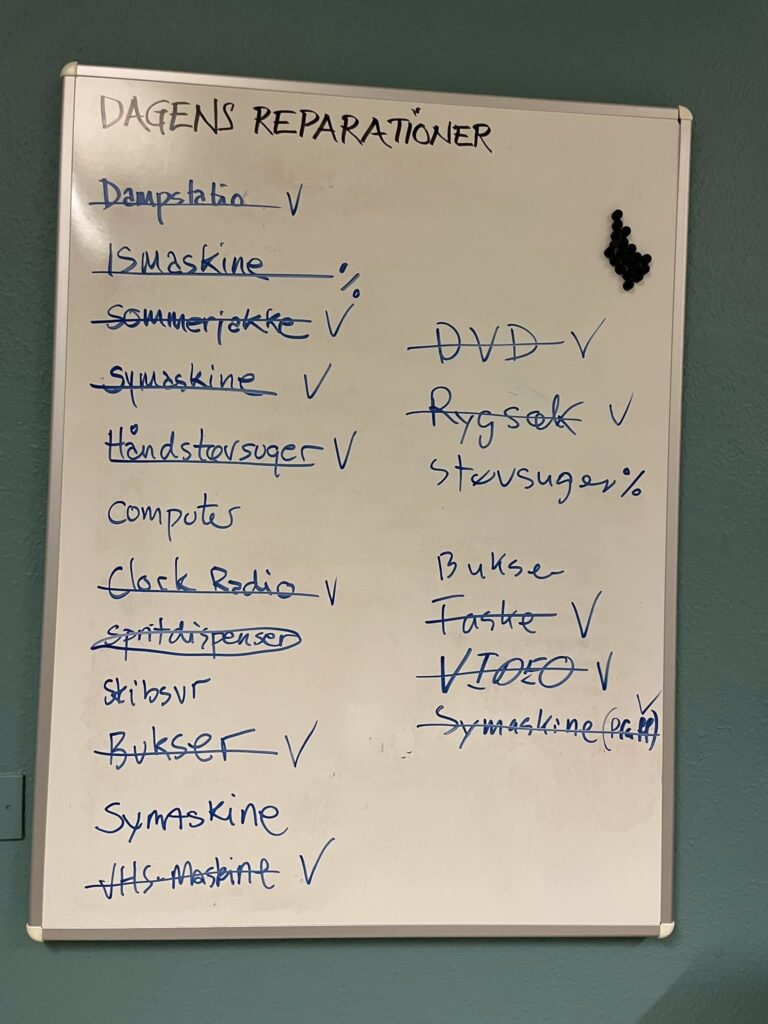 DAGENS REPARATIONER
Dampstatio V
ISmaskine %
Sommerjakke V
Symaskine V
Håndstøvsuger V
Computer
Clock Radio V
Spritdispenser
Skibsur
Bukser V
Symaskine
VHS-Maskine V
DVD V
Rygsæk V
Støvsuger %
Bukser
Taske V
VIDEO V
Symaskine (Pfaff) V